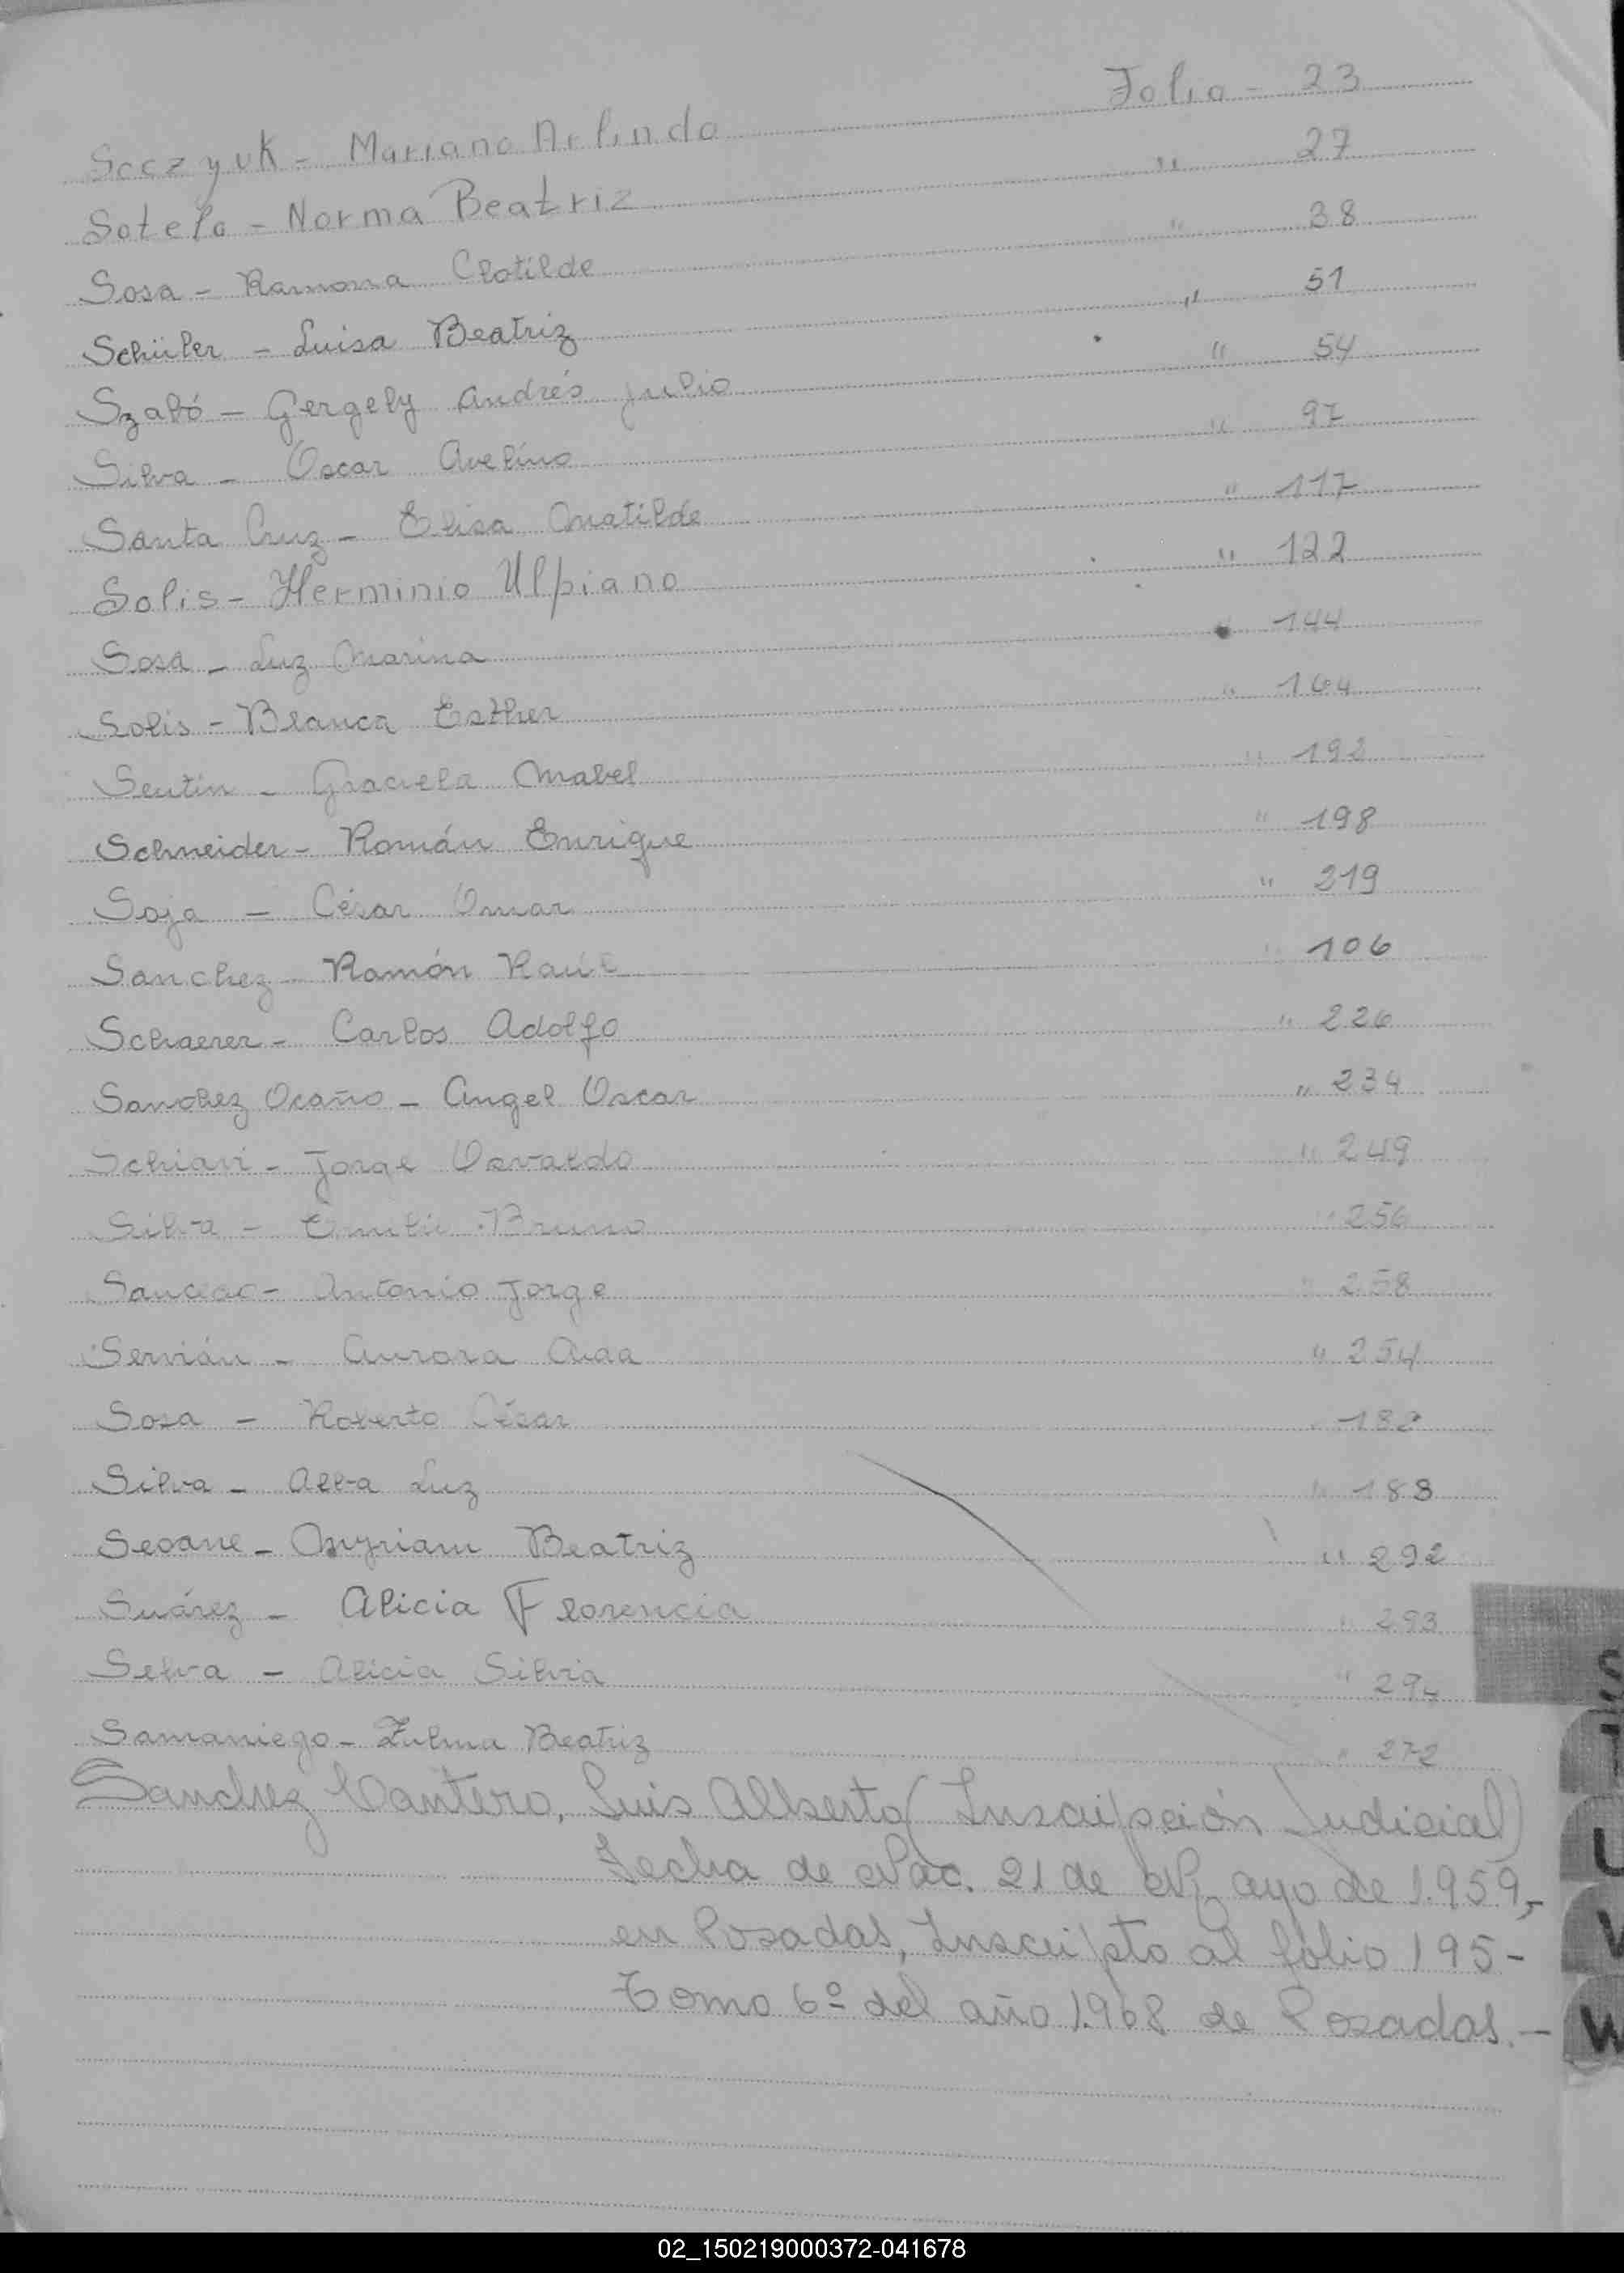 Soczyuk - Mariano Arlindo Folio - 23
Sotelo - Norma Beatriz " 27
Sosa - Ramona Clotilde " 38
Schüler - Luisa Beatriz " 51
Szabó - Gergely Andrés Julio " 54
Silva - Oscar Avelino " 97
Santa Cruz - Elisa Matilde " 117
Solis - Herminio Ulpiano " 122
Sosa - Luz Marina " 144
Solis - Blanca Esther " 164
Sentin - Graciela Mabel " 192
Schneider - Román Enrique " 198
Soja - César Omar " 219
Sanchez - Ramón Raúl " 106
Schaerer - Carlos Adolfo " 226
Sanchez Ocaño - Angel Oscar " 234
Schiavi - Jorge Osvaldo " 249
Silva - Emilio Bruno " 256
Antonio Jorge " 258
Servián - Aurora Aida " 254
Sosa - Roberto César " 182
Silva - Alba Luz " 188
Seoane - Myriam Beatriz " 292
Suárez - Alicia Florencia " 293
Selva - Alicia Silvia " 294
Samaniego - Zulma Beatriz " 272
Sanchez Cantero, Luis Alberto (Inscripción Judicial)
Fecha de Nac. 21 de Mayo de 1.959,-
en Posadas, Inscripto al folio 195-
Tomo 6º del año 1.968 de Posadas.-
S
T
U
V
W
02_150219000372-041678